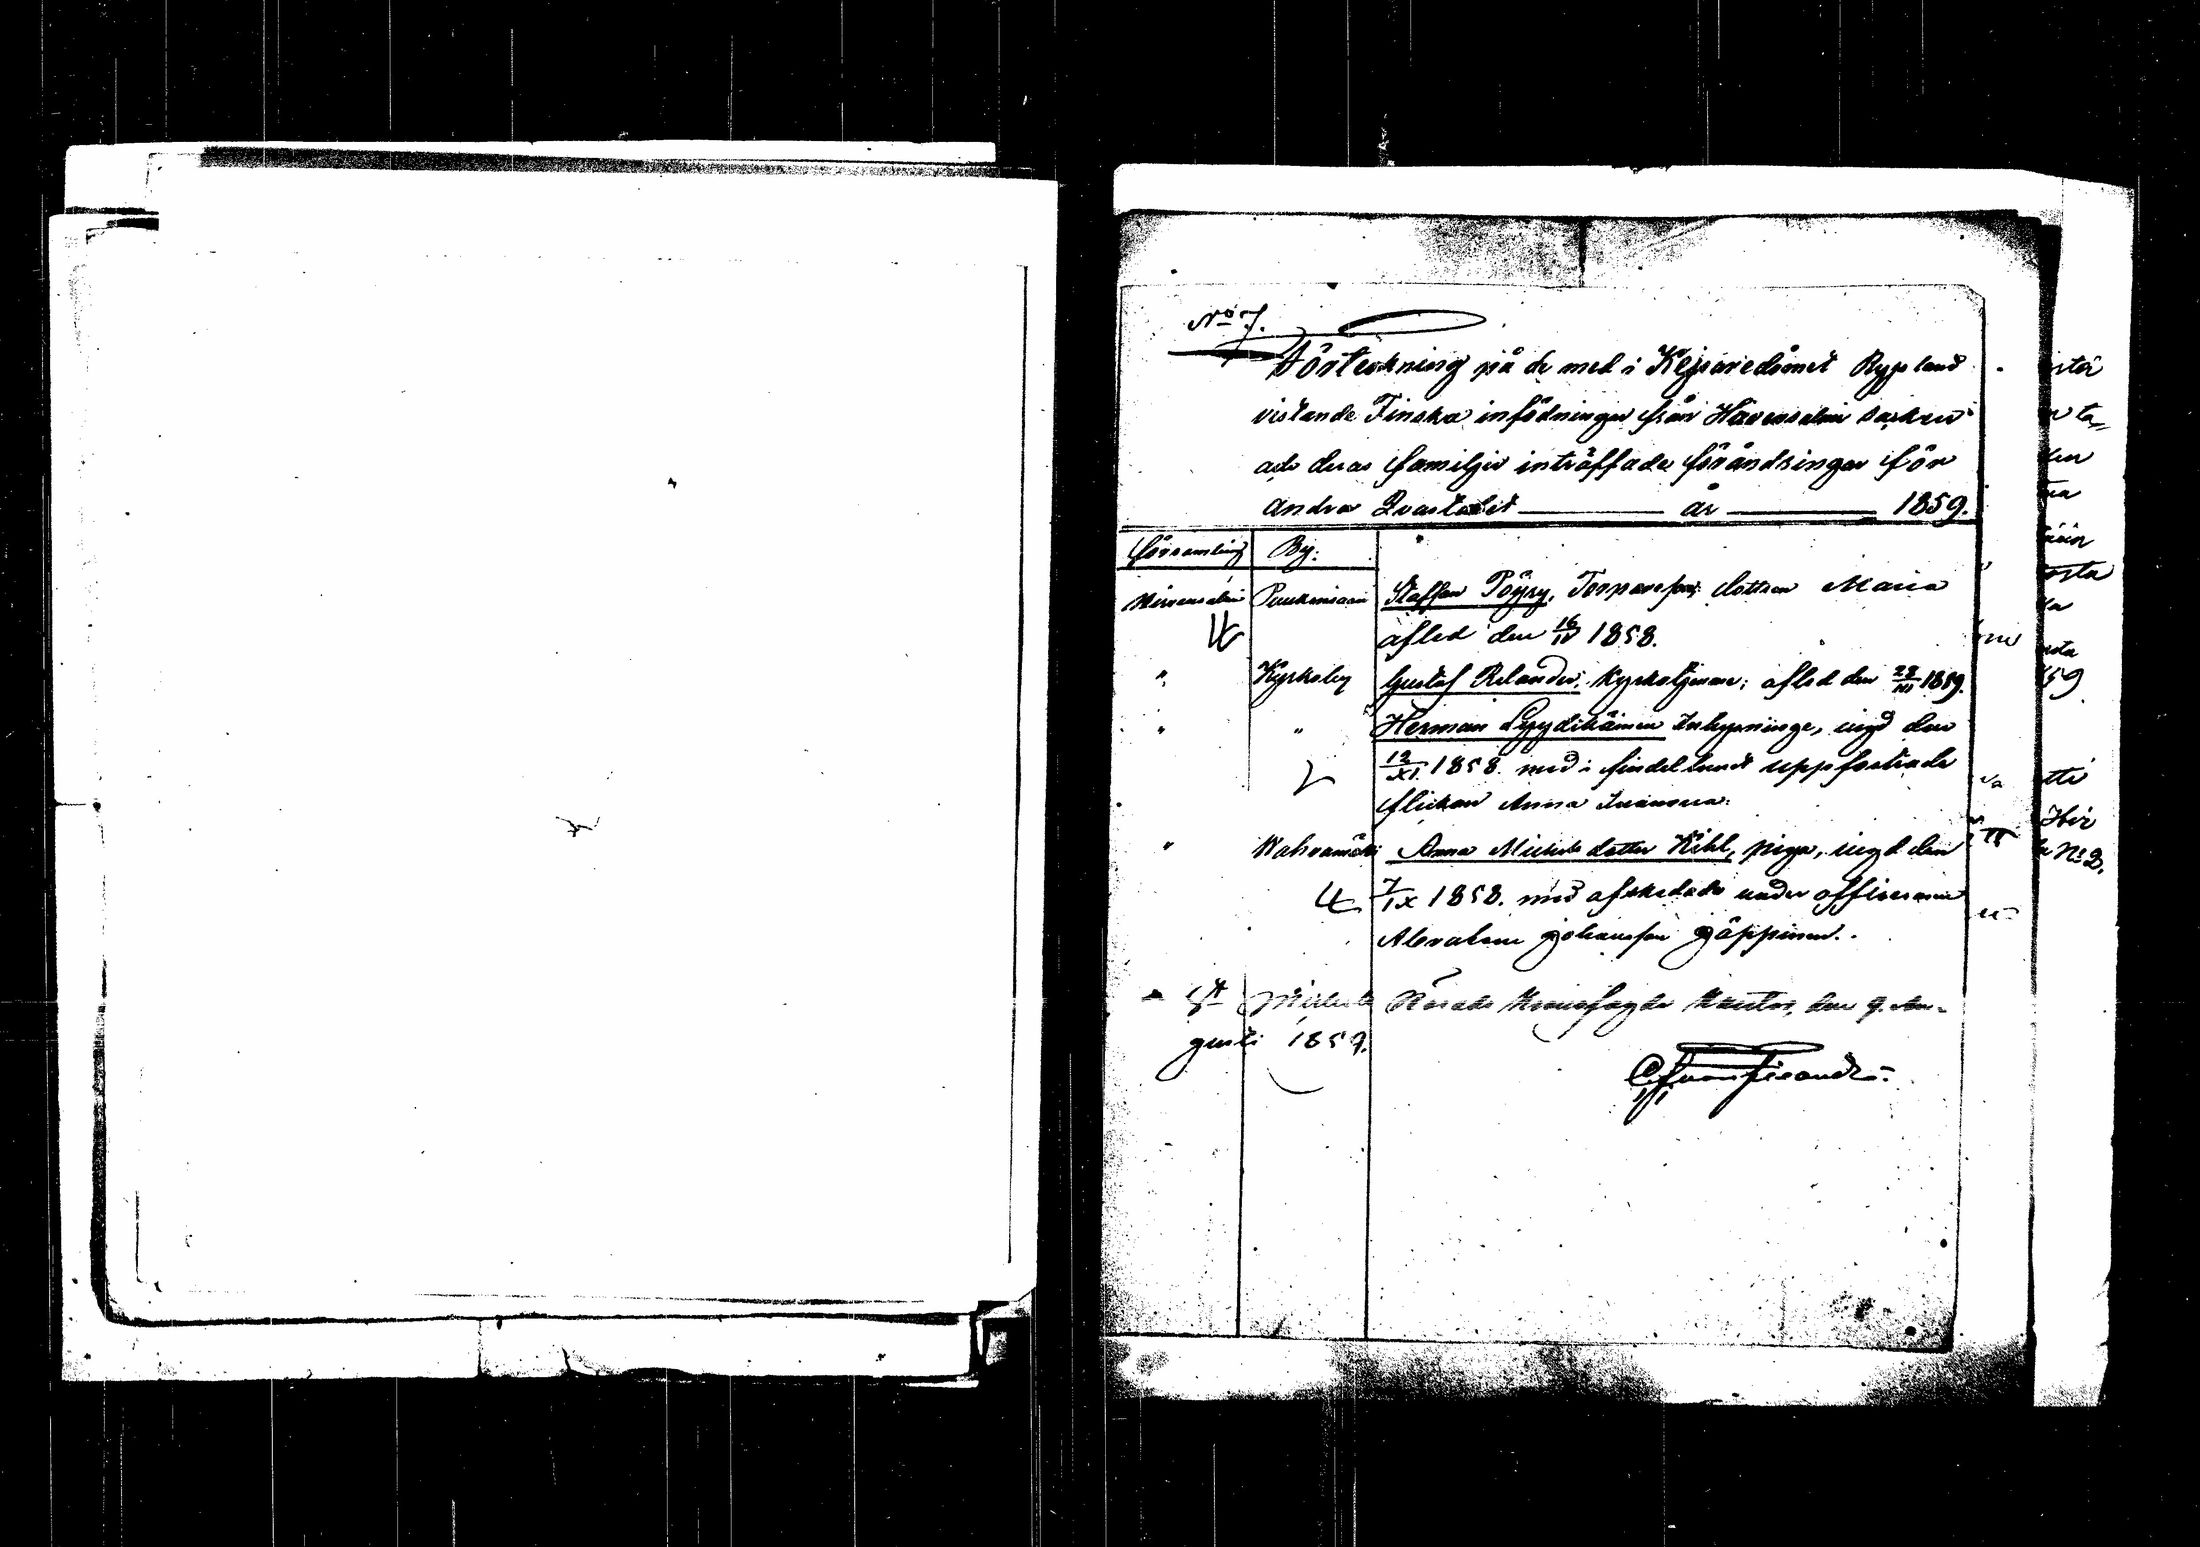 No 7.
Förteckning på de med i Kejsaredömet Ryssland
vistande Finska infödningar från Hirvensalmi socken
och deras familjer inträffade förändringar för
andra Qvartalet ——— år ——— 1859.
Församling By:
Hirvensalmi Puukonsaari Staffan Pöyry, Torpareson, dottren Maria
afled den 16/IV 1858.
" Kyrkoby Gustaf Relander, ; afled den 1859.
" " Herman Lyydikäinen Inhysninge, vigd den
12/XI 1858. med i findelhuset uppfostrade
flickan Anna Ivanowa.
" Wahvamäki Anna Michelsdotter Kihl, piga, vigd den
7/IX 1858. med afskedade underofficeraren
Abraham Johansson Jäppinen.
St Michels Härads Kronofogde Kontor, den 9. Au-
gusti 1859.